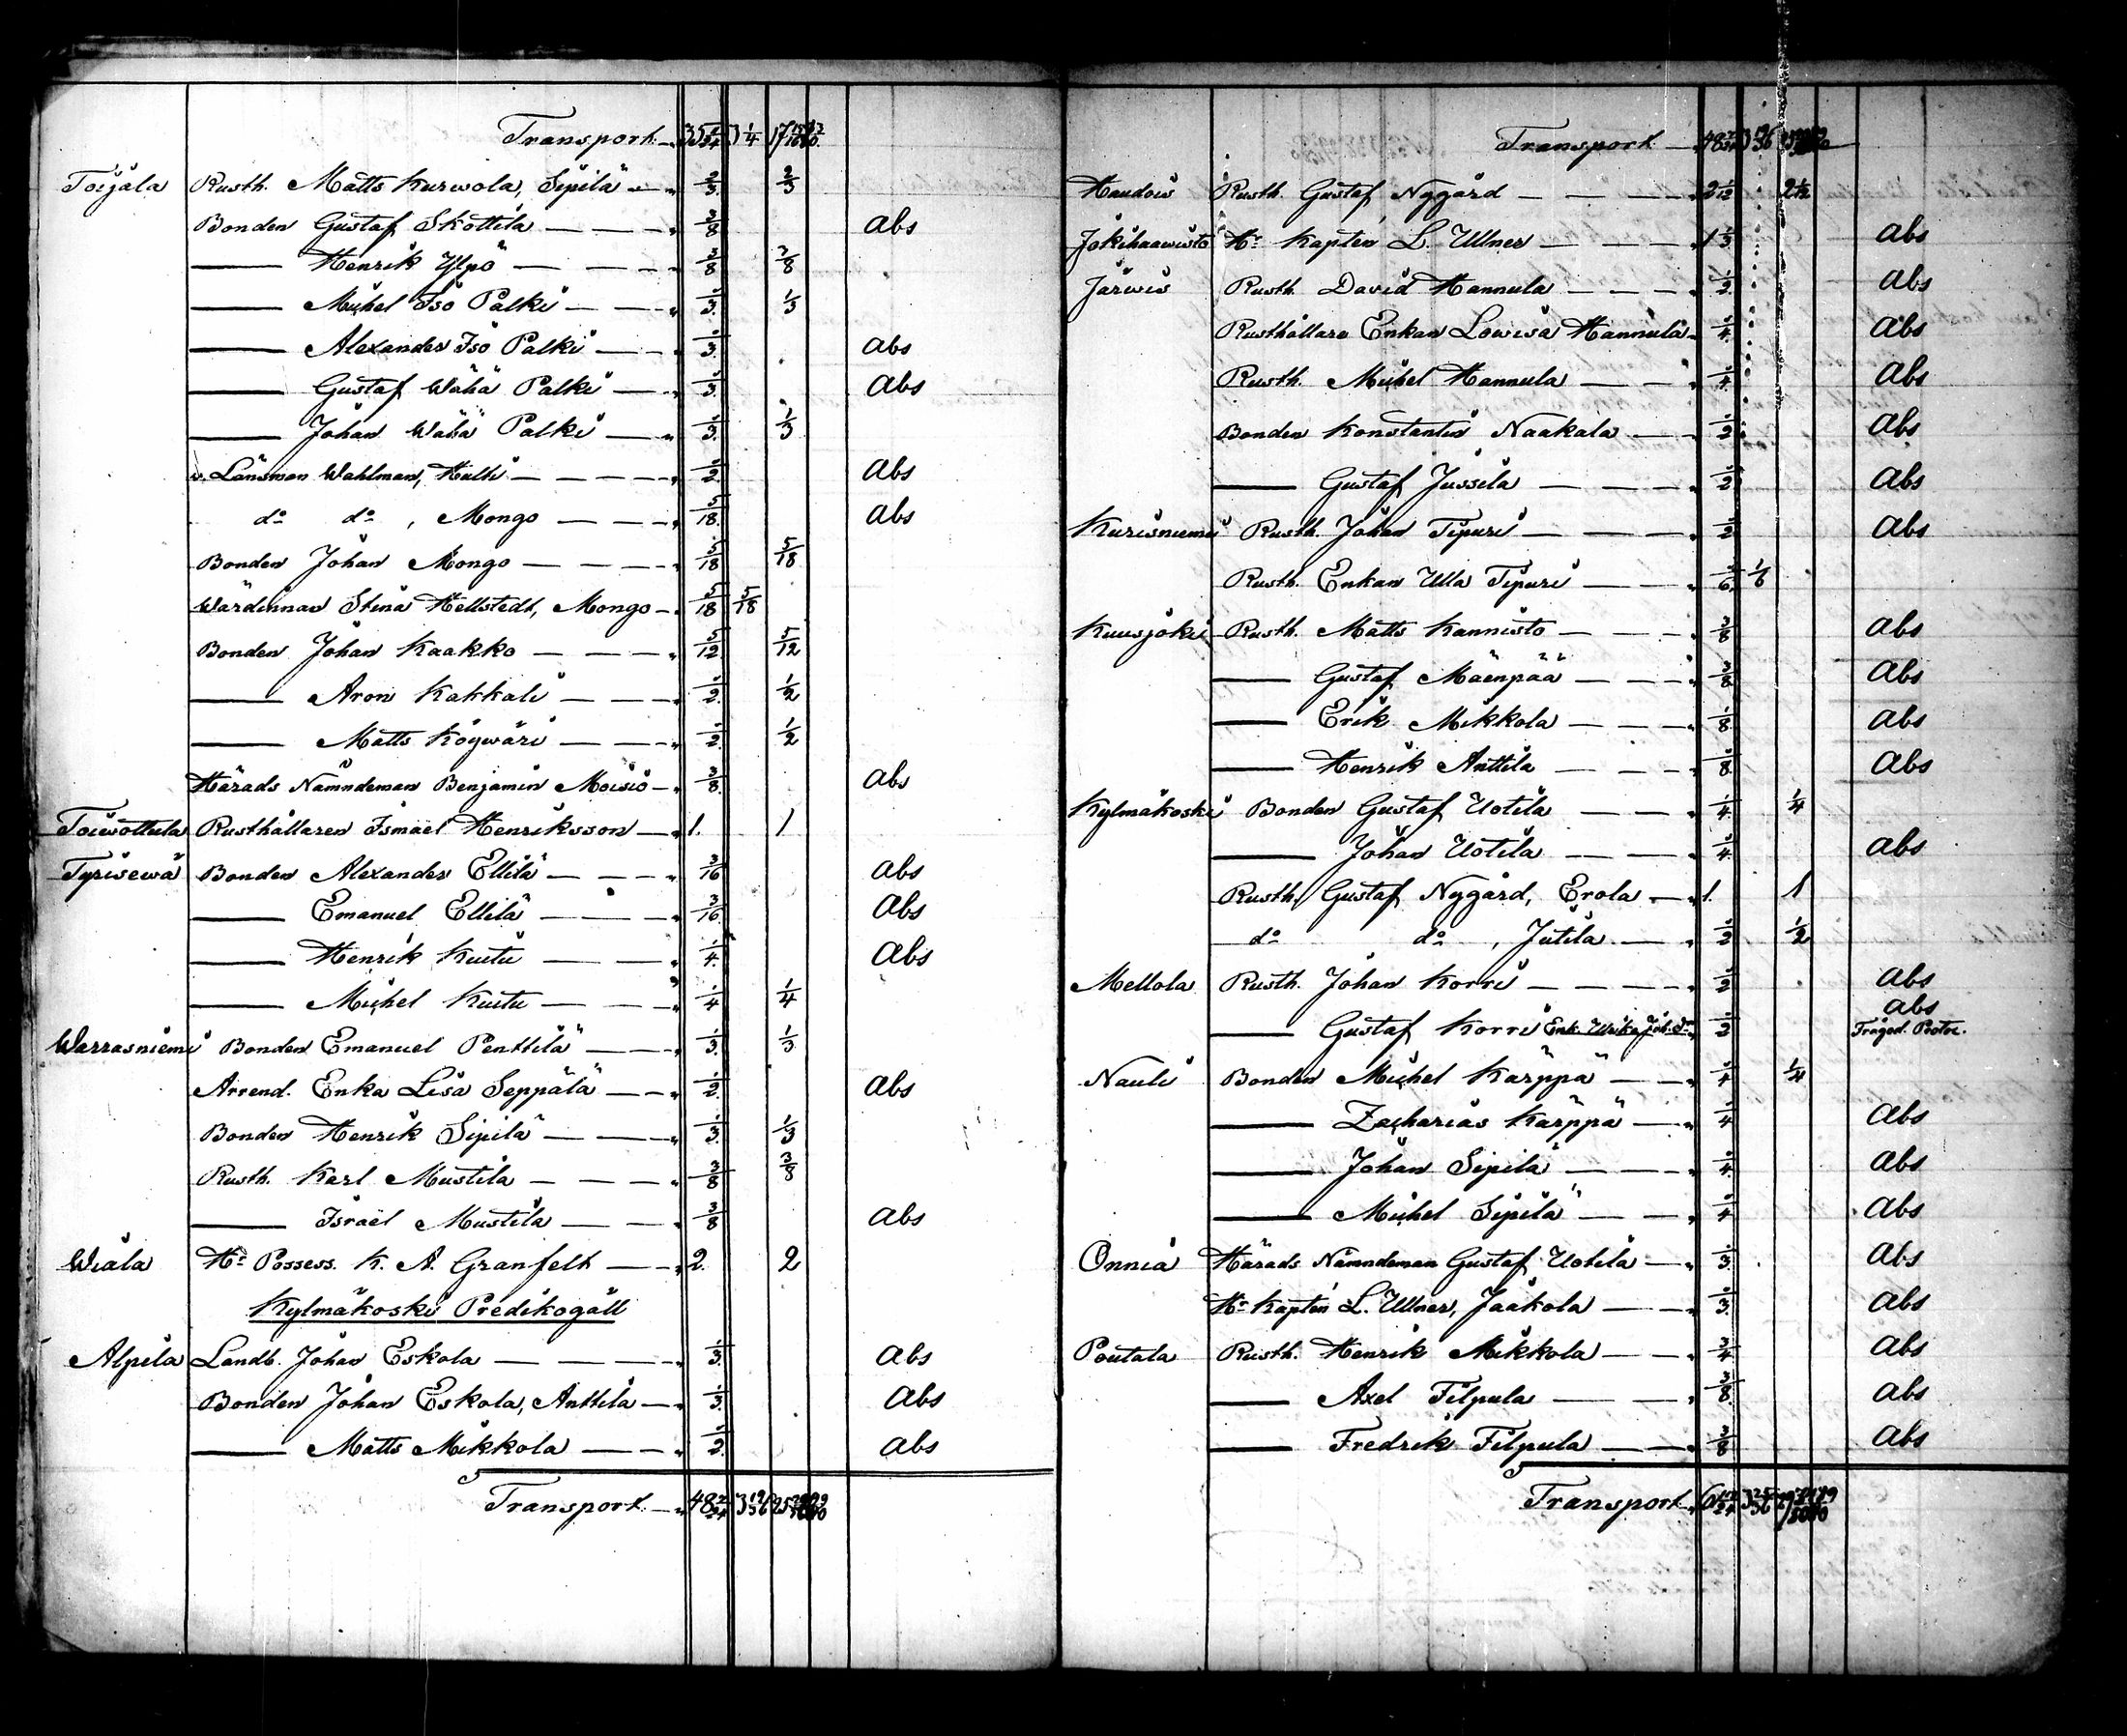 Transport 35 5/24 3 1/4
Toijala Rusth. Matts Kurwola, Sipilä " 2/3 2/3
Bonden Gustaf Skottila " 3/8 Abs
—— Henrik Ylpö " 3/8 3/8
—— Michel Iso Palki " 1/3 1/3
—— Alexander Iso Palki " 1/3 Abs
—— Gustaf Wähä Palki " 1/3 Abs
—— Johan Wähä Palki " 1/3 1/3
v. Länsman Wahlman, " 1/2 Abs
do do , Mongo " 5/18 Abs
Bonden Johan Mongo " 5/18 5/18
Wärdinnan Stina Hellstedt, Mongo " 5/18 5/18
Bonden Johan Kaakko " 5/12 5/12
—— Aron Kakkali " 1/2 1/2
—— Matts Kögwäri " 1/2 1/2
Härads Nämndeman Benjamin Moisio " 3/8 Abs
Toiwottula Rusthållaren Ismael Henriksson 1. 1
Tyrisewä Bonden Alexander Ellilä " 3/16 Abs
—— Emanuel Ellilä " 3/16 Abs
—— Henrik Kuitu " 1/4 Abs
—— Michel Kuitu " 1/4 1/4
Warrasniemi Bonden Emanuel Penttilä " 1/3 1/3
Arrend. Enka Lisa Seppälä " 1/2 Abs
Bonden Henrik Sipilä " 1/3 1/3
Rusth. Karl Mustila " 3/8 3/8
—— Israel Mustila " 3/8 Abs
Wiala Hr Possess. K. A. Granfelt 2. 2
Kylmäkoski Predikogäll
Alpila Landb. Johan Eskola " 1/3 Abs
Bonden Johan Eskola, Anttila " 1/3 Abs
—— Matts Mikkola " 1/2 Abs
Transport 48 7/24 3 19/36
Transport 48 7/24 3 19/36
Haudois Rusth. Gustaf Nygård 2 1/12 2 1/12
Jokihaawisto Hr Kapten L. Ullner 1 1/3 Abs
Järwis Rusth. David Hannula " 1/2 Abs
Rusthållare Enkan Lowisa Hannula " 1/4 Abs
Rusth. Michel Hannula " 1/4 Abs
Bonden Konstantin Naakala " 1/2 Abs
—— Gustaf Jussila " 1/2 Abs
Kurisniemi Rusth. Johan Tipuri " 1/2 Abs
Rusth. Enkan Ulla Tipuri " 1/6 1/6
Kuusjoki Rusth. Matts Kannisto " 3/8 Abs
—— Gustaf Mäenpää " 3/8 Abs
—— Erik Mikkola " 1/8 Abs
—— Henrik Anttila " 1/8 Abs
Kylmäkoski Bonden Gustaf Uotila " 1/4 1/4
—— Johan Uotila " 1/4 Abs
Rusth. Gustaf Nygård, Erola 1. 1
do do , Jutila " 1/2 1/2
Mellola Rusth. Johan Korri " 1/2 Abs
—— Gustaf Korri Enk. Ulrika Joh. dr " 1/2 Abs
Frågod. Protoc.
Nauli Bonden Michel Kärppä " 1/4 1/4
—— Zacharias Kärppä " 1/4 Abs
—— Johan Sipilä " 1/4 Abs
—— Michel Sipilä " 1/4 Abs
Onnia Härads Nämndeman Gustaf Uotila " 1/3 Abs
Hr Kapten L. Ullner, Jaakola " 1/3 Abs
Poutala Rusth. Henrik Mikkola " 3/4 Abs
—— Axel Filpula " 3/8 Abs
—— Fredrik Filpula " 3/8 Abs
Transport 3 25/36